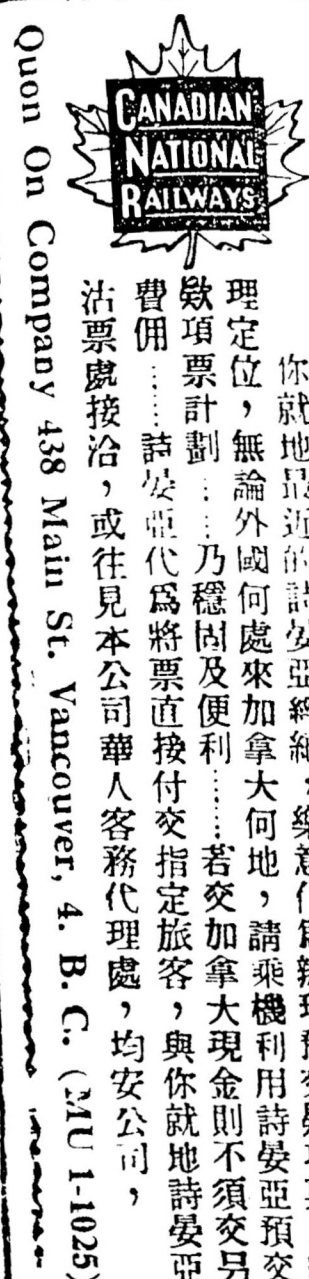 CANADIAN
NATIONAL
RAILWAYS
你就地最近的詩晏亞總細，樂意代爲辦理預交
理定位，無論外國何處來加拿大何地，請乘機利用詩晏亞預交
欵項票計劃……乃穩固及便利……若交加拿大現金則不須交另
費佣……詩晏亞代爲將票直接付交指定旅客，與你就地詩晏亞
沽票處接洽，或往見本公司華人客務代理處，均安公司，
Quon On Company 438 Main St. Vancouver, 4. B. C. (MU 1-1025)